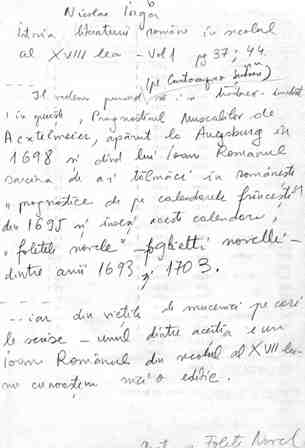 Nicolae Iorga
Istoria literaturii române în secolul
al XVIII lea - Vol 1 pg 37; 44.
(pt Cantacuzino
Il vedem punând
Muscalilor de
Acxtelmeier, apărut la Augsburg în
1698 și dând lui Ioan Romanul
sarcina de a-i tălmăci în românește
"prognostice de pe calendarele frîncești"
din 1695 și încă aceste calendare,
"foletele novele" - foglietti novelli -
dintre anii 1693 și 1703.
... iar din viețile de mucenici pe care
le scrise - unul dintre aceștia e un
Ioan Românul din secolul al XVII lea -
nu cunoaștem nici o ediție.
Foleti Novel